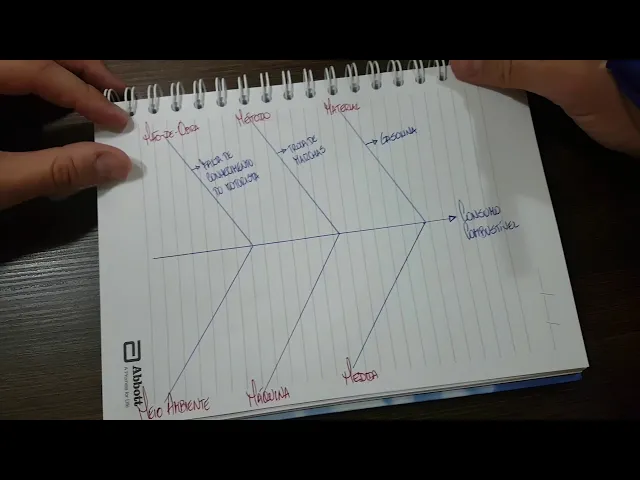 MÃO-DE-OBRA
MÉTODO
MATERIAL
FALTA DE
CONHECIMENTO
DO MOTORISTA
TROCA DE
MARCHAS
GASOLINA
CONSUMO
COMBUSTÍVEL
MEIO AMBIENTE
MÁQUINA
MEDIDA
Abbott